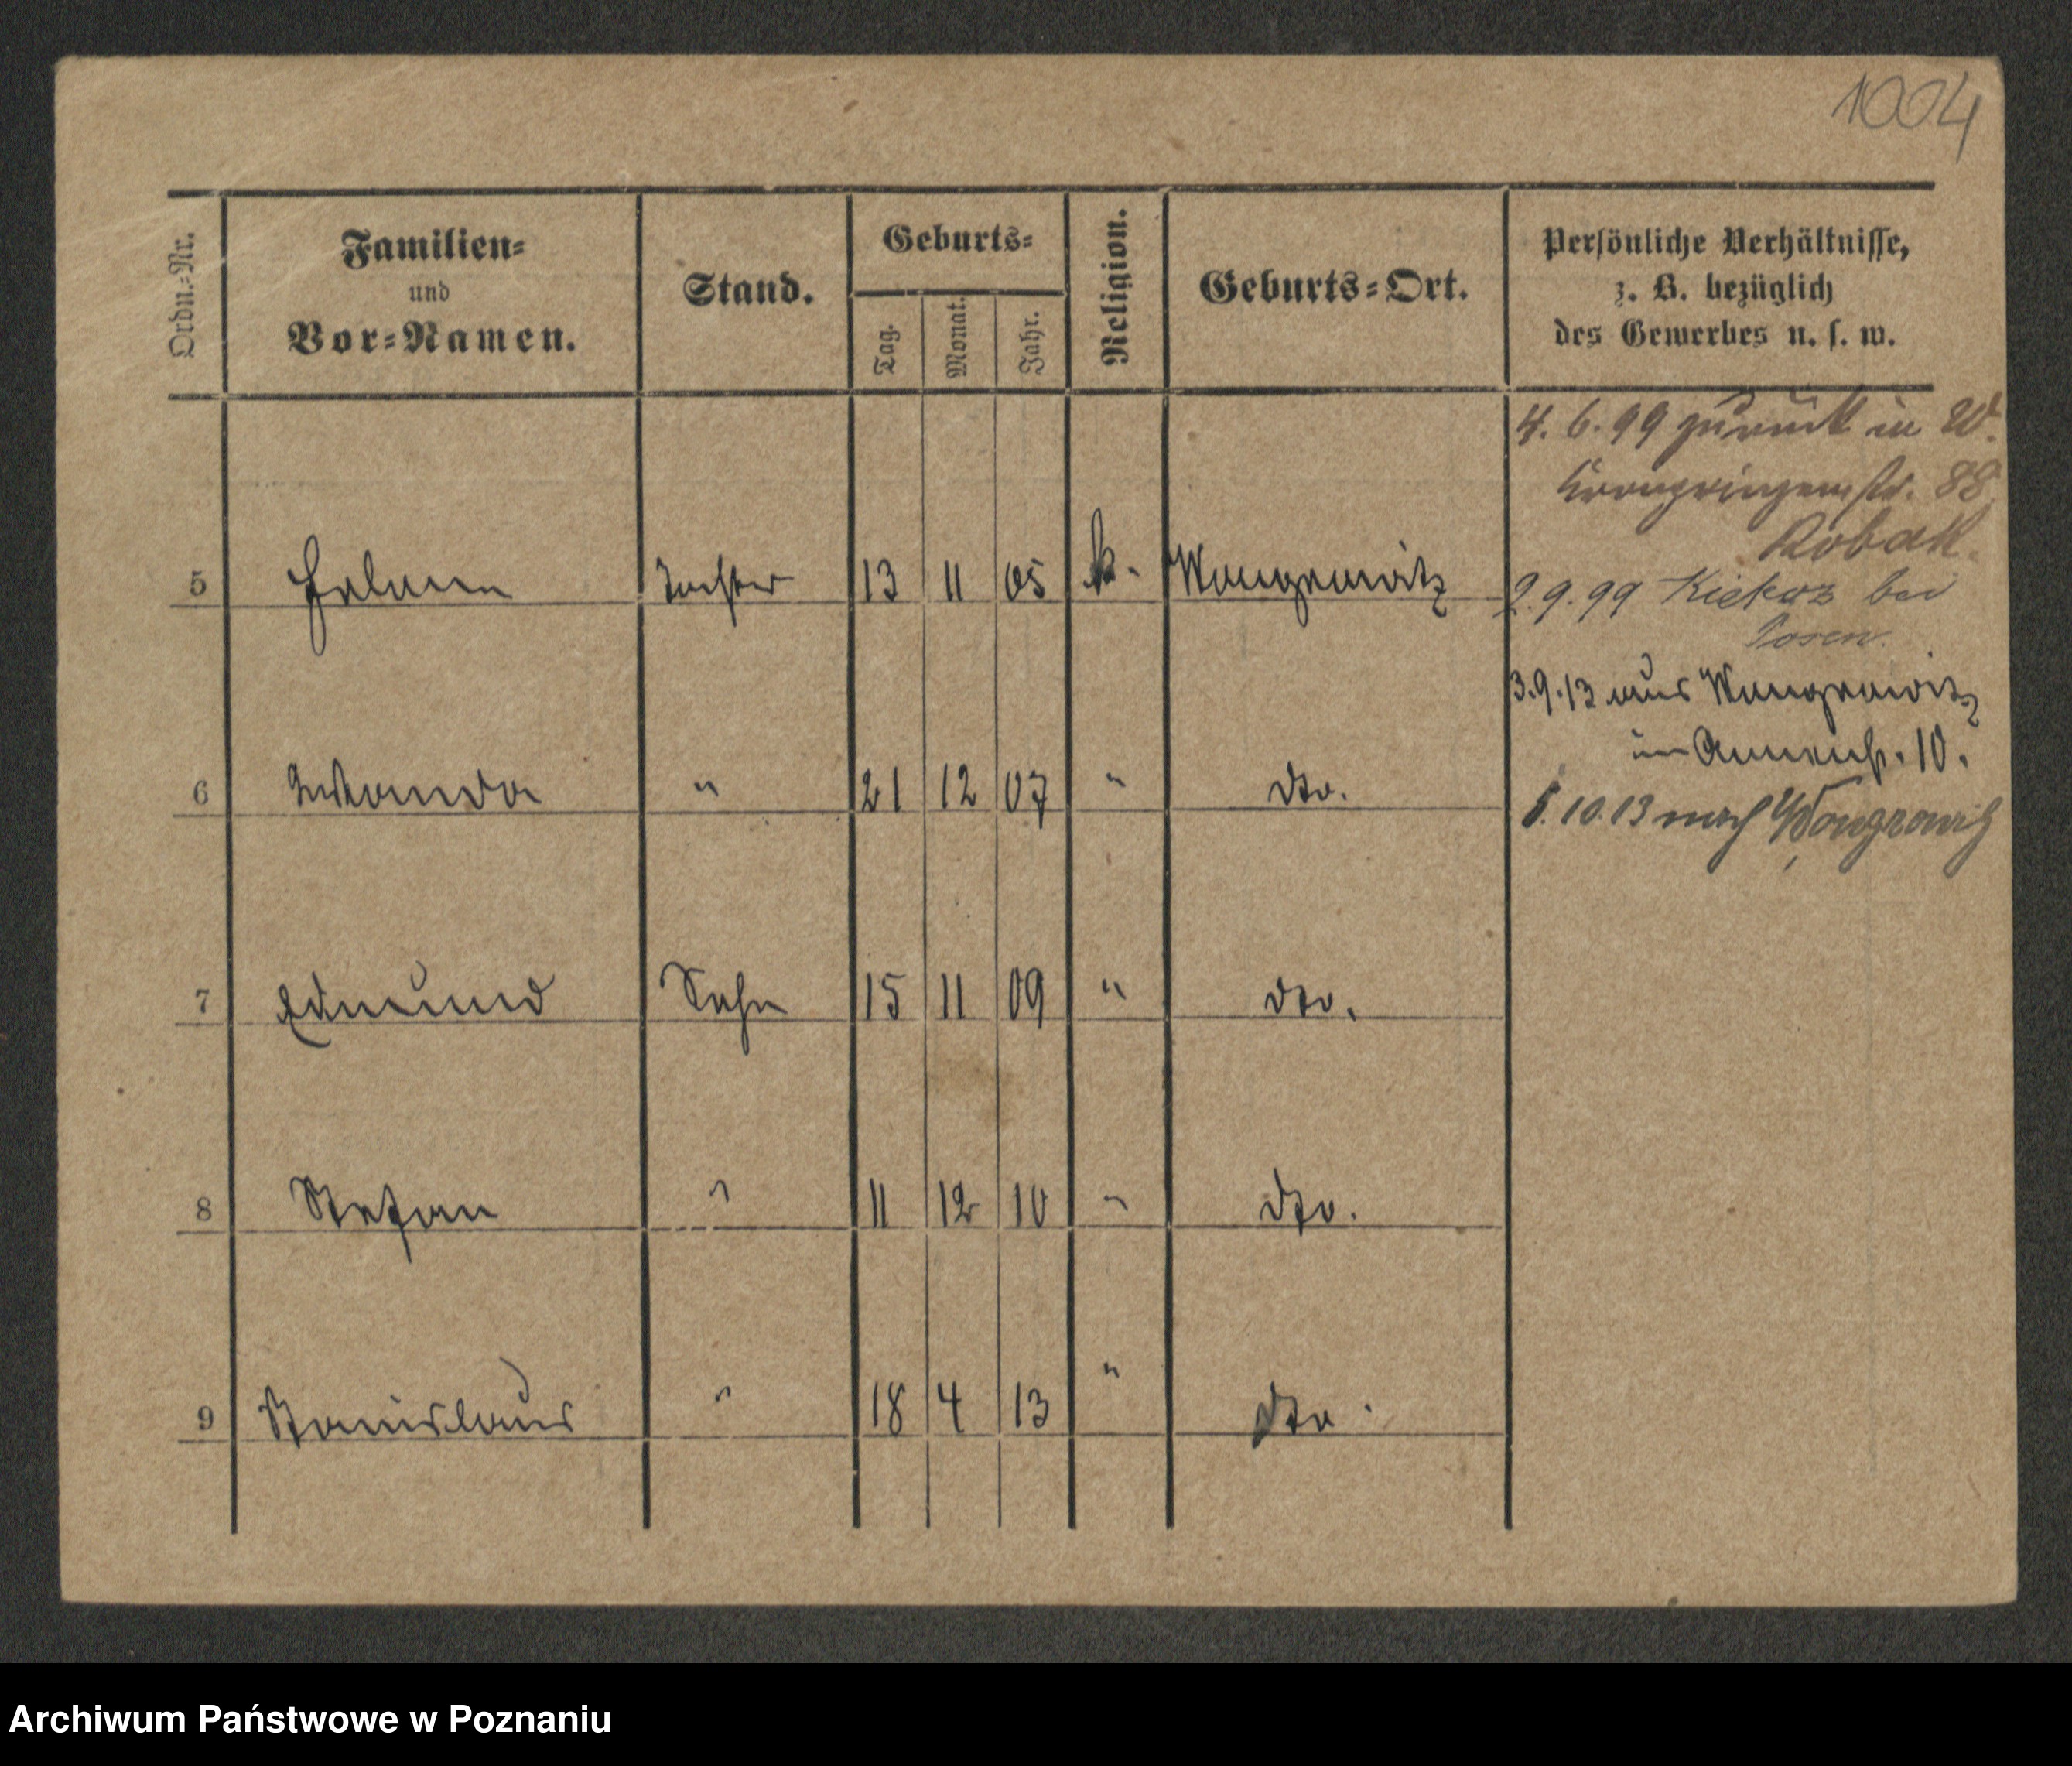 1004
Ordn.=Nr.
Familien=
und
Vor=Namen.
Stand.
Geburts=
Tag.
Monat.
Jahr.
Religion.
Geburts=Ort.
Persönliche Verhältnisse,
z. B. bezüglich
des Gewerbes u. s. w.
4. 6. 99 zurück in W.
Kronprinzenstr. 88
Robak.
2. 9. 99 Kiekrz bei
Posen.
3.9.13 aus Wongrowitz
in Annenstr. 10.
5. 10. 13 nach Wongrowitz
5 Helene Tochter 13 11 05 k. Wongrowitz
6 " 21 12 07 " dto.
7 Edmund Sohn 15 11 09 " dto.
8 Stefan " 11 12 10 " dto.
9 Stanislaus " 18 4 13 " dto.
Archiwum Państwowe w Poznaniu